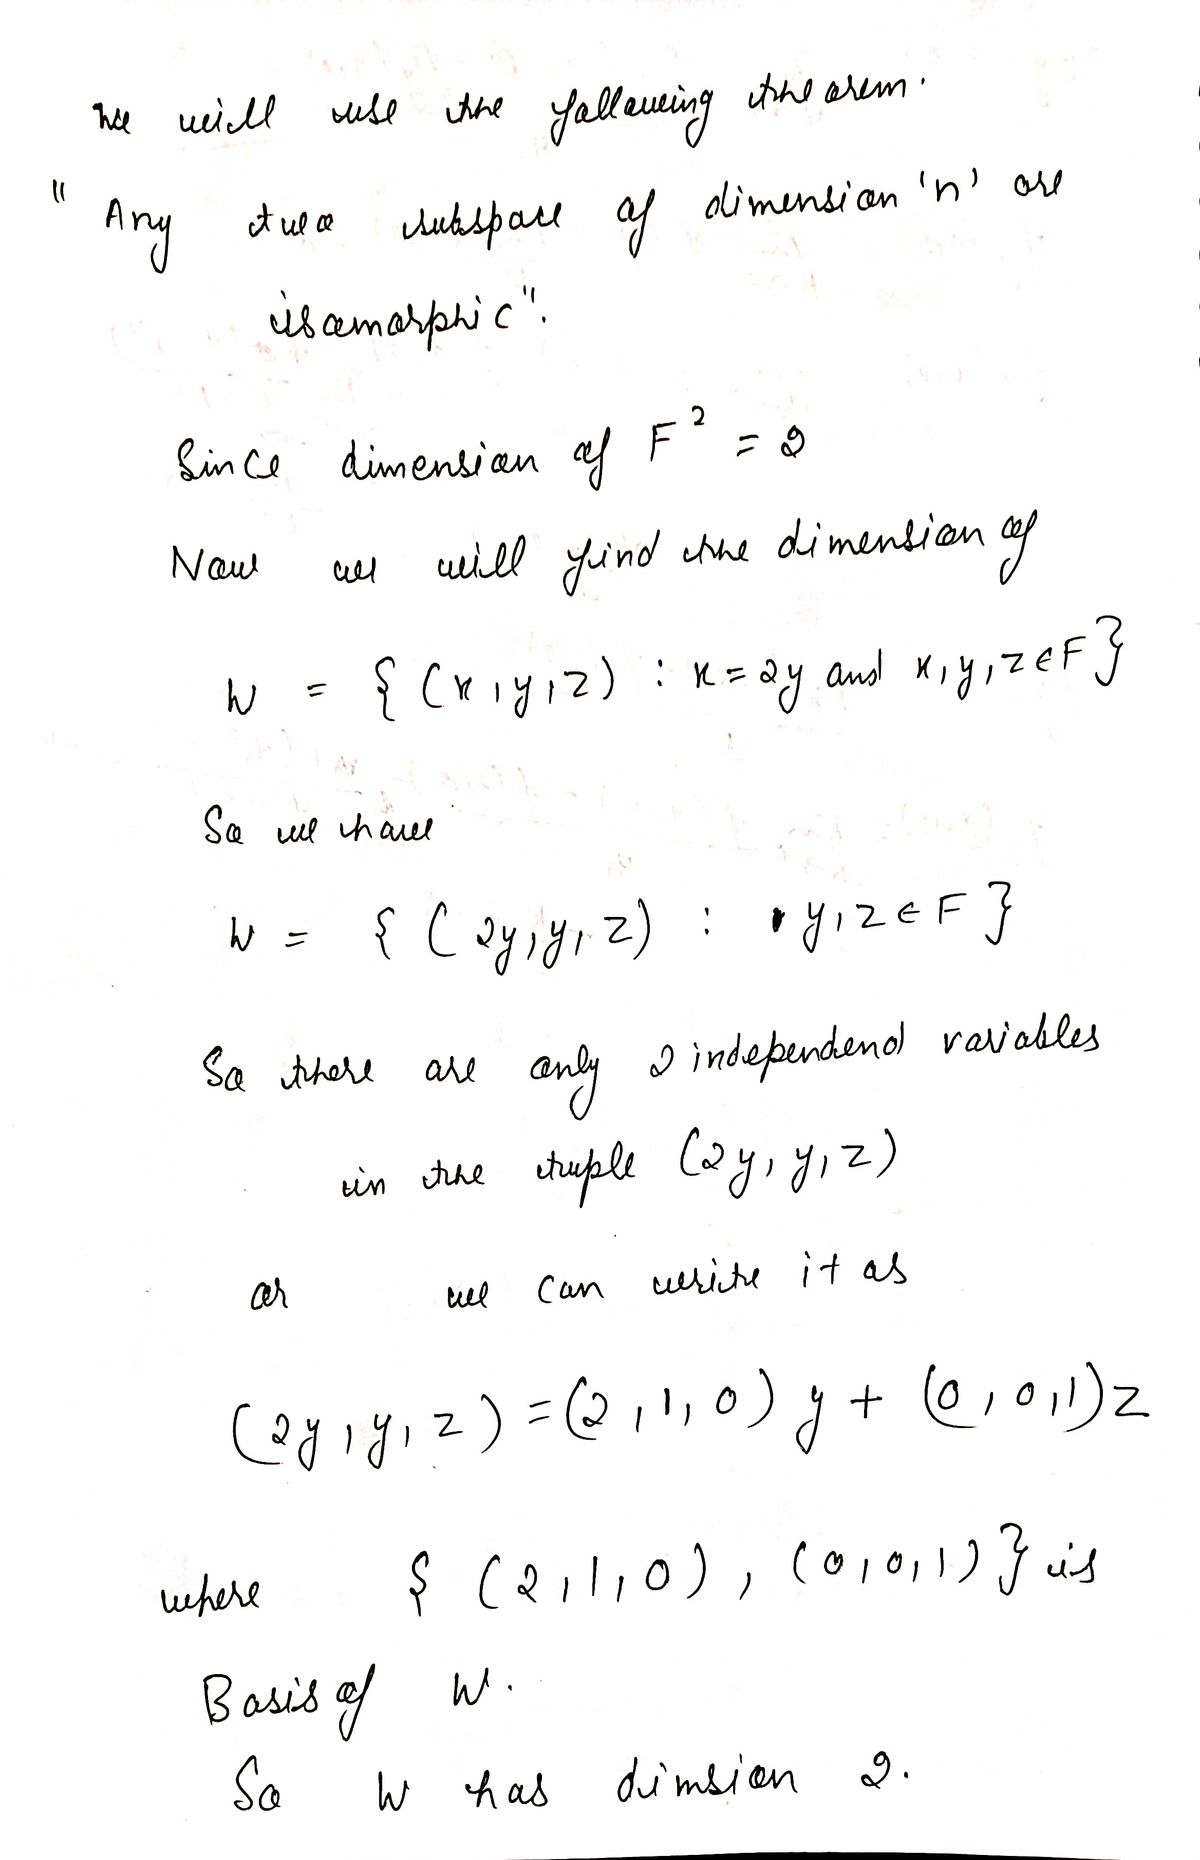 We will use the following theorem.
" Any two subspace of dimension 'n' are
isomorphic".
Since dimension of F² = 2
Now we will find the dimension of
W = { (x, y, z) : x = 2y and x, y, z ∈ F }
So we have
W = { (2y, y, z) : y, z ∈ F }
So there are only 2 independend variables
in the tuple (2y, y, z)
or we can write it as
(2y, y, z) = (2, 1, 0) y + (0, 0, 1) z
where { (2, 1, 0), (0, 0, 1) } is
Basis of W.
So W has dimsion 2.